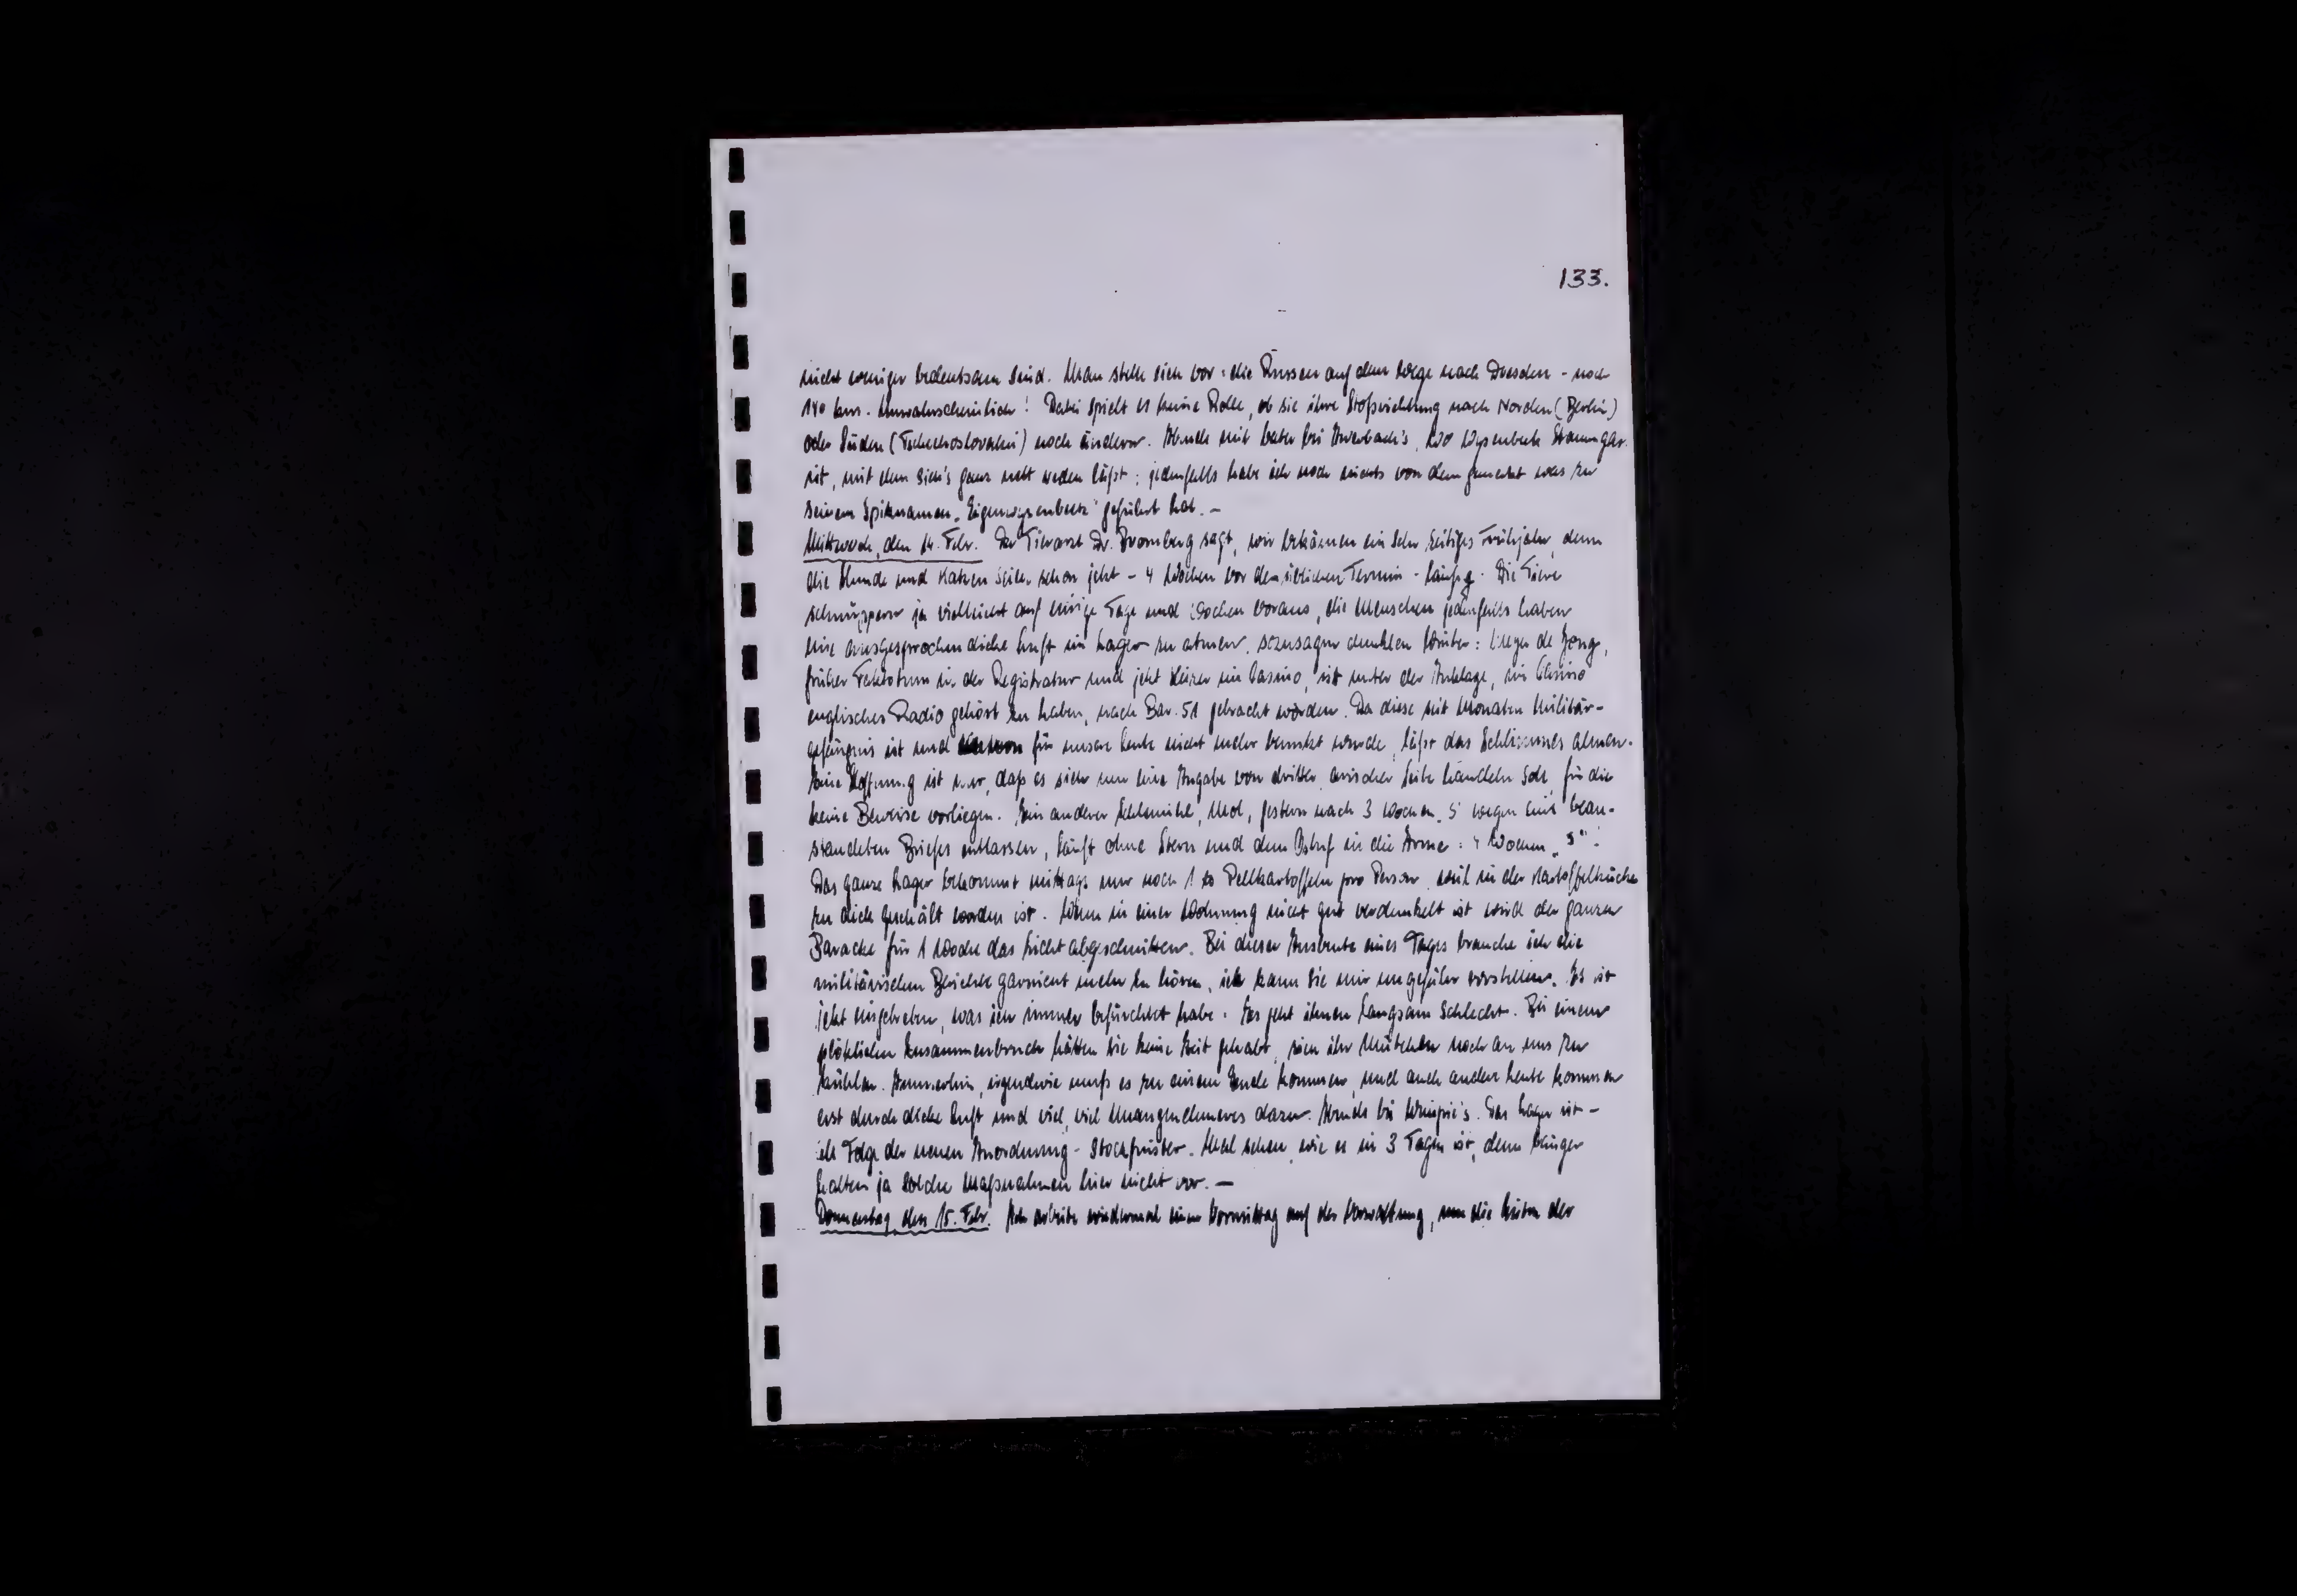 133.
nicht weniger bedeutsam sind. Man stelle sich vor: die Russen auf dem Wege nach Dresden - noch
140 km. Unwahrscheinlich! Dabei spielt es keine Rolle, ob sie ihre Stoßrichtung nach Norden (Berlin)
oder Süden (Tschechoslovakei) noch ändern. Abends mit bei Auerbach's, wo Wysenbeek Stammgast
ist, mit dem sich's ganz nett reden läßt; jedenfalls habe ich noch nichts von dem gemerkt was zu
seinem Spitznamen „Eigenwysenbeek" geführt hat. -
Mittwoch, den 14. Febr. Der Tierarzt Dr. Bromberg sagt, wir bekämen ein sehr zeitiges Frühjahr, denn
die Hunde und Katzen seien schon jetzt - 4 Wochen vor dem üblichen Termin - läufig. Die Tiere
schnuppern ja vielleicht auf einige Tage und Wochen voraus, die Menschen jedenfalls haben
eine ausgesprochen dicke Luft im Lager zu atmen, sozusagen dunklen Winter: de Jong,
früher Faktotum in der Registratur und jetzt Heizer im Casino, ist unter der Anklage, im Casino
englisches Radio gehört zu haben, nach Bar. 51 gebracht worden. Da diese seit Monaten Militär-
gefängnis ist und für unsere Leute nicht mehr benutzt wurde, läßt das Schlimmes ahnen.
Seine Hoffnung ist nur, daß es sich um eine Angabe von dritter, arischer Seite handeln soll, für die
keine Beweise vorliegen. Ein anderer Schlemihl, Mol, gestern nach 3 Wochen „S" wegen eines bean-
standeten Briefes entlassen, läuft ohne Stern und dem in die Arme: 4 Wochen „S".
Das ganze Lager bekommt mittags nur noch 1 Pellkartoffeln pro Person, weil in der Kartoffelküche
zu dick geschält worden ist. Wenn in einer Wohnung nicht gut verdunkelt ist wird der ganzen
Baracke für 1 Woche das Licht abgeschnitten. Bei dieser Ausbeute eines Tages brauche ich die
militärischen Berichte garnicht mehr zu hören, ich kann sie mir ungefähr vorstellen. Es ist
jetzt eingetreten, was ich immer befürchtet habe: Es geht ihnen langsam schlecht. Bei einem
plötzlichen Zusammenbruch hätten sie keine Zeit gehabt, sich ihr Mütchen noch an uns zu
kühlen. Immerhin, irgendwie muß es zu einem Ende kommen, und auch andere Leute kommen
erst durch dicke Luft und viel, viel Unangenehmeres dazu. Abends bei. Das Lager ist -
als Folge der neuen Anordnung - stockfinster. Mal sehen, wie es in 3 Tagen ist, denn länger
halten ja solche Maßnahmen hier nicht vor. -
Donnerstag, den 15. Febr. Ich arbeite wiedermal einen Vormittag auf der Verwaltung, um die der